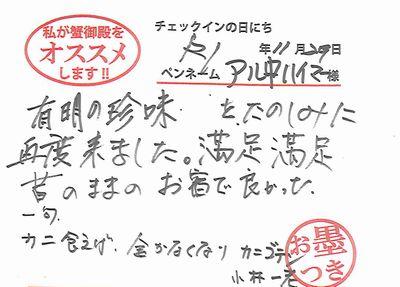 私が蟹御殿を
オススメ
します!!
チェックインの日にち
年11月29日
ペンネーム アル中ハイマー様
有明の珍味 をたのしみに
再度来ました。満足満足
昔のままのお宿で良かった
一句
カニ食えば、金がなくなり カニゴテン
小林一茶
お墨つき